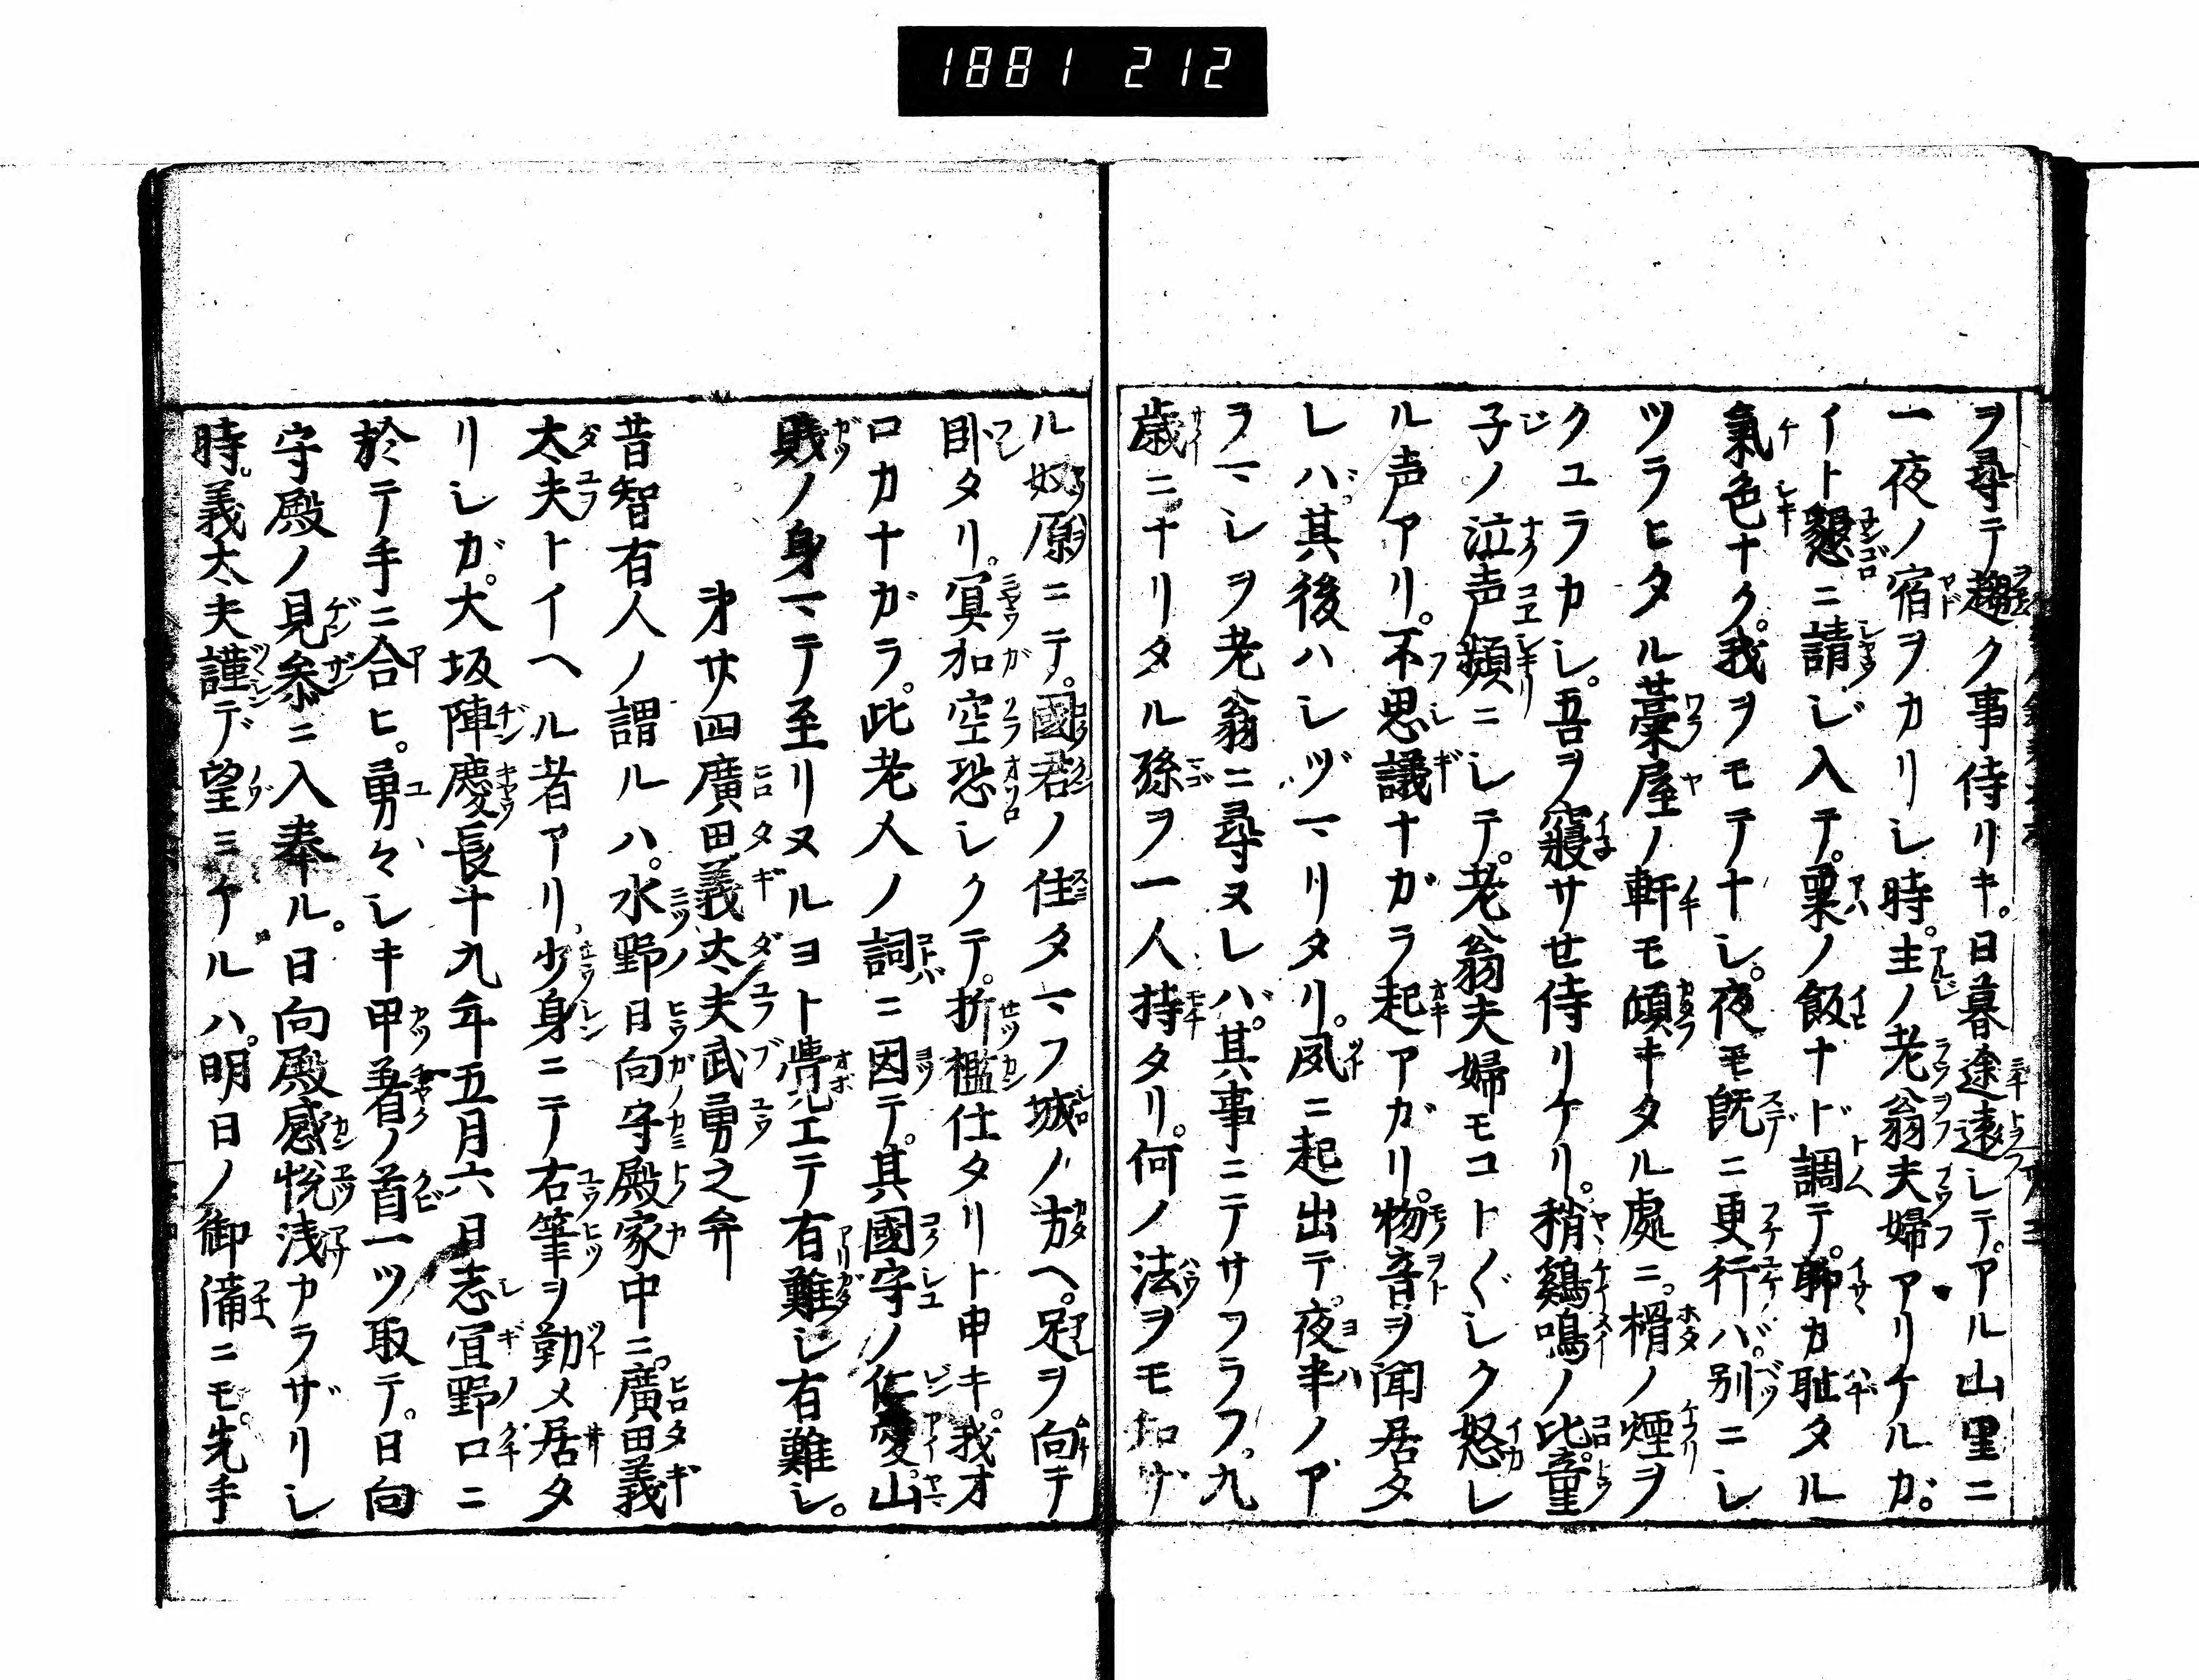 1881 212
ヲ尋テ趣ク事侍リキ。日暮途遠シテ。アル山里ニ
一夜ノ宿ヲカリシ時。主ノ老翁夫婦アリケルガ。
イト懇ニ請ジ入テ。粟ノ飯ナド調テ。聊カ耻タル
氣色ナク。我ヲモテナシ。夜モ既ニ更行バ。別ニシ
ツラヒタル藁屋ノ軒モ傾キタル處ニ。榾ノ煙ヲ
クユラカシ。吾ヲ寢サセ侍リケリ。稍鷄鳴ノ比。童
子ノ泣声頻ニシテ。老翁夫婦モコト〲シク怒レ
ル声アリ。不思議ナガラ起アガリ。物音ヲ聞居タ
レバ。其後ハシヅマリタリ。夙ニ起出テ。夜半ノア
ラマシヲ老翁ニ尋ヌレバ。其事ニテサフラフ。九
歳ニナリタル孫ヲ一人持タリ。何ノ法ヲモ知ザ
ル奴原ニテ。國君ノ住タマフ城ノ方ヘ。足ヲ向テ
臥タリ。冥加空恐シクテ。折檻仕タリト申キ。我オ
ロカナガラ。此老人ノ詞ニ因テ。其國守ノ仁愛。山
賎ノ身マテ至リヌルヨト覺エテ有難シ有難シ。
第廿四廣田義太夫武勇之弁
昔智有人ノ謂ルハ。水野日向守殿家中ニ。廣田義
太夫トイヘル者アリ。少身ニテ右筆ヲ勤メ居タ
リシガ。大坂陣慶長十九年五月六日志宜野口ニ
於テ手ニ合ヒ。勇々シキ甲着ノ首一ツ取テ。日向
守殿ノ見参ニ入奉ル。日向殿感悦浅カラザリシ
時。義太夫謹デ望ミケルハ。明日ノ御備ニモ。先手